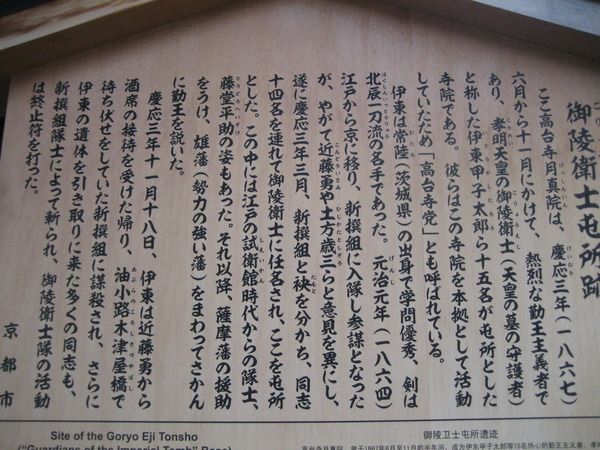 御陵衛士屯所跡
ここ高台寺月真院は、慶応三年(一八六七)
六月から十一月にかけて、熱烈な勤王主義者で
あり、孝明天皇の御陵衛士(天皇の墓の守護者)
と称した伊東甲子太郎ら十五名が屯所とした
寺院である。彼らはこの寺院を本拠として活動
していたため「高台寺党」とも呼ばれている。
伊東は常陸(茨城県)の出身で学問優秀、剣は
北辰一刀流の名手であった。元治元年(一八六四)
江戸から京に移り、新撰組に入隊し参謀となった
が、やがて近藤勇や土方歳三らと意見を異にし、
遂に慶応三年三月、新撰組と袂を分かち、同志
十四名を連れて御陵衛士に任名され、ここを屯所
とした。この中には江戸の試衛館時代からの隊士、
藤堂平助の姿もあった。それ以降、薩摩藩の援助
をうけ、雄藩(勢力の強い藩)をまわってさかん
に勤王を説いた。
慶応三年十一月十八日、伊東は近藤勇から
酒席の接待を受けた帰り、油小路木津屋橋で
待ち伏せをしていた新撰組に謀殺され、さらに
伊東の遺体を引き取りに来た多くの同志も、
新撰組隊士によって斬られ、御陵衛士隊の活動
は終止符を打った。
京都市
Site of the Goryo Eji Tonsho
("Guardians of the Imperial Tomb" Base)
御陵卫士屯所遗迹